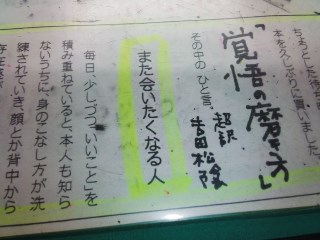 ちょっとした待ち
本を久しぶりに買いました。
「覚悟の磨き方」
超訳 吉田松陰
その中の ひと言。
また会いたくなる人
毎日、少しづつ"いいこと"を
積み重ねていると、本人も知ら
ないうちに、身のこなし方が洗
練されていき、顔とか背中から